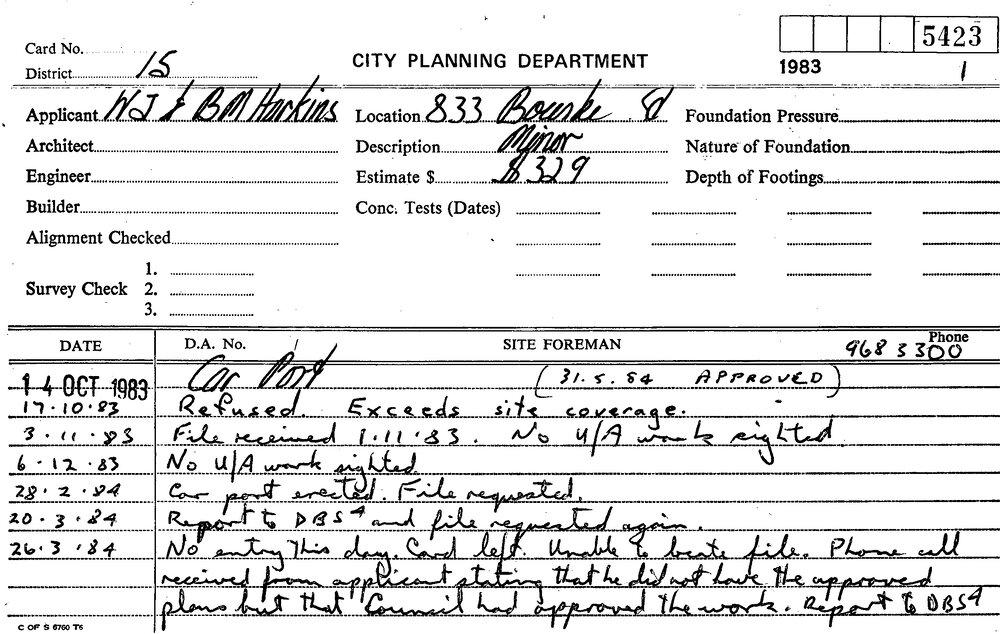 5423
Card No.
District 15
CITY PLANNING DEPARTMENT
1983 1
Applicant WJ & BM Harkins Location 833 Bourke St Foundation Pressure
Architect Description Minor Nature of Foundation
Engineer Estimate $ $329 Depth of Footings
Builder Conc. Tests (Dates)
Alignment Checked
1.
Survey Check 2.
3.
DATE D.A. No. SITE FOREMAN Phone
968 3300
14 OCT 1983 Car Port (31.5.84 APPROVED)
17.10.83 Refused. Exceeds site coverage.
3.11.83 File received 1.11.83. No U/A work sighted
6.12.83 No U/A work sighted
28.2.84 Car port erected. File requested.
20.3.84 Report to DBS4 and file requested again.
26.3.84 No entry this day. Card left. Unable to locate file. Phone call
received from applicant stating that he did not have the approved
plans but that Council had approved the work. Report to DBS4
C OF S 6760 T6